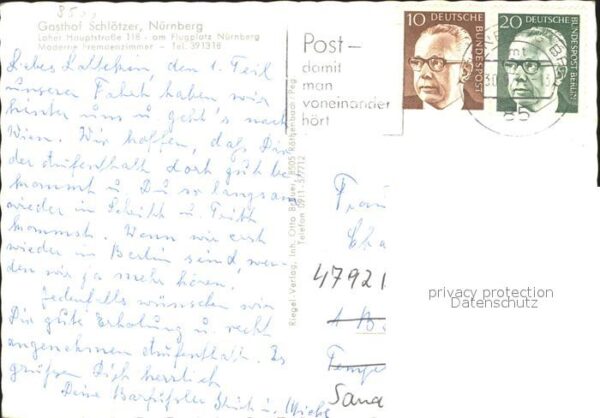 Gasthof Schlötzer, Nürnberg
Loher Hauptstraße 118 - am Flugplatz Nürnberg
Moderne Fremdenzimmer - Tel. 391318
den 1. Teil
unserer Fahrt haben wir
hinter uns u. geht's nach
Wien. Wir hoffen, daß Dir
der Aufenthalt dort gut be-
kommt u. Du so langsam
wieder in Schritt u. Tritt
kommst. Wenn wir erst
wieder in Berlin sind, wer-
den wir ja mehr hören.
Jedenfalls wünschen wir
Dir gute Erholung u. recht
angenehmen Aufenthalt. Es
grüßen Dich herzlich
Deine
Riegel Verlag, Inh. Otto Bauer, 8505 Röthenbach/Peg.
Telefon 0911-577712
Post-
damit
man
voneinander
hört
10 DEUTSCHE BUNDESPOST
20 DEUTSCHE BUNDESPOST BERLIN
85
47921
privacy protection
Datenschutz